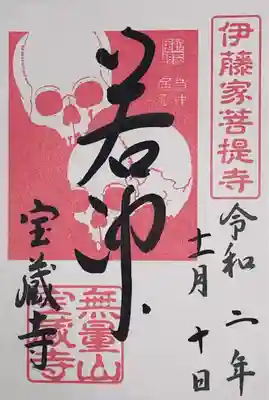 伊藤家菩提寺
令和二年
十一月十日
若冲
宝蔵寺
無量山
宝蔵寺